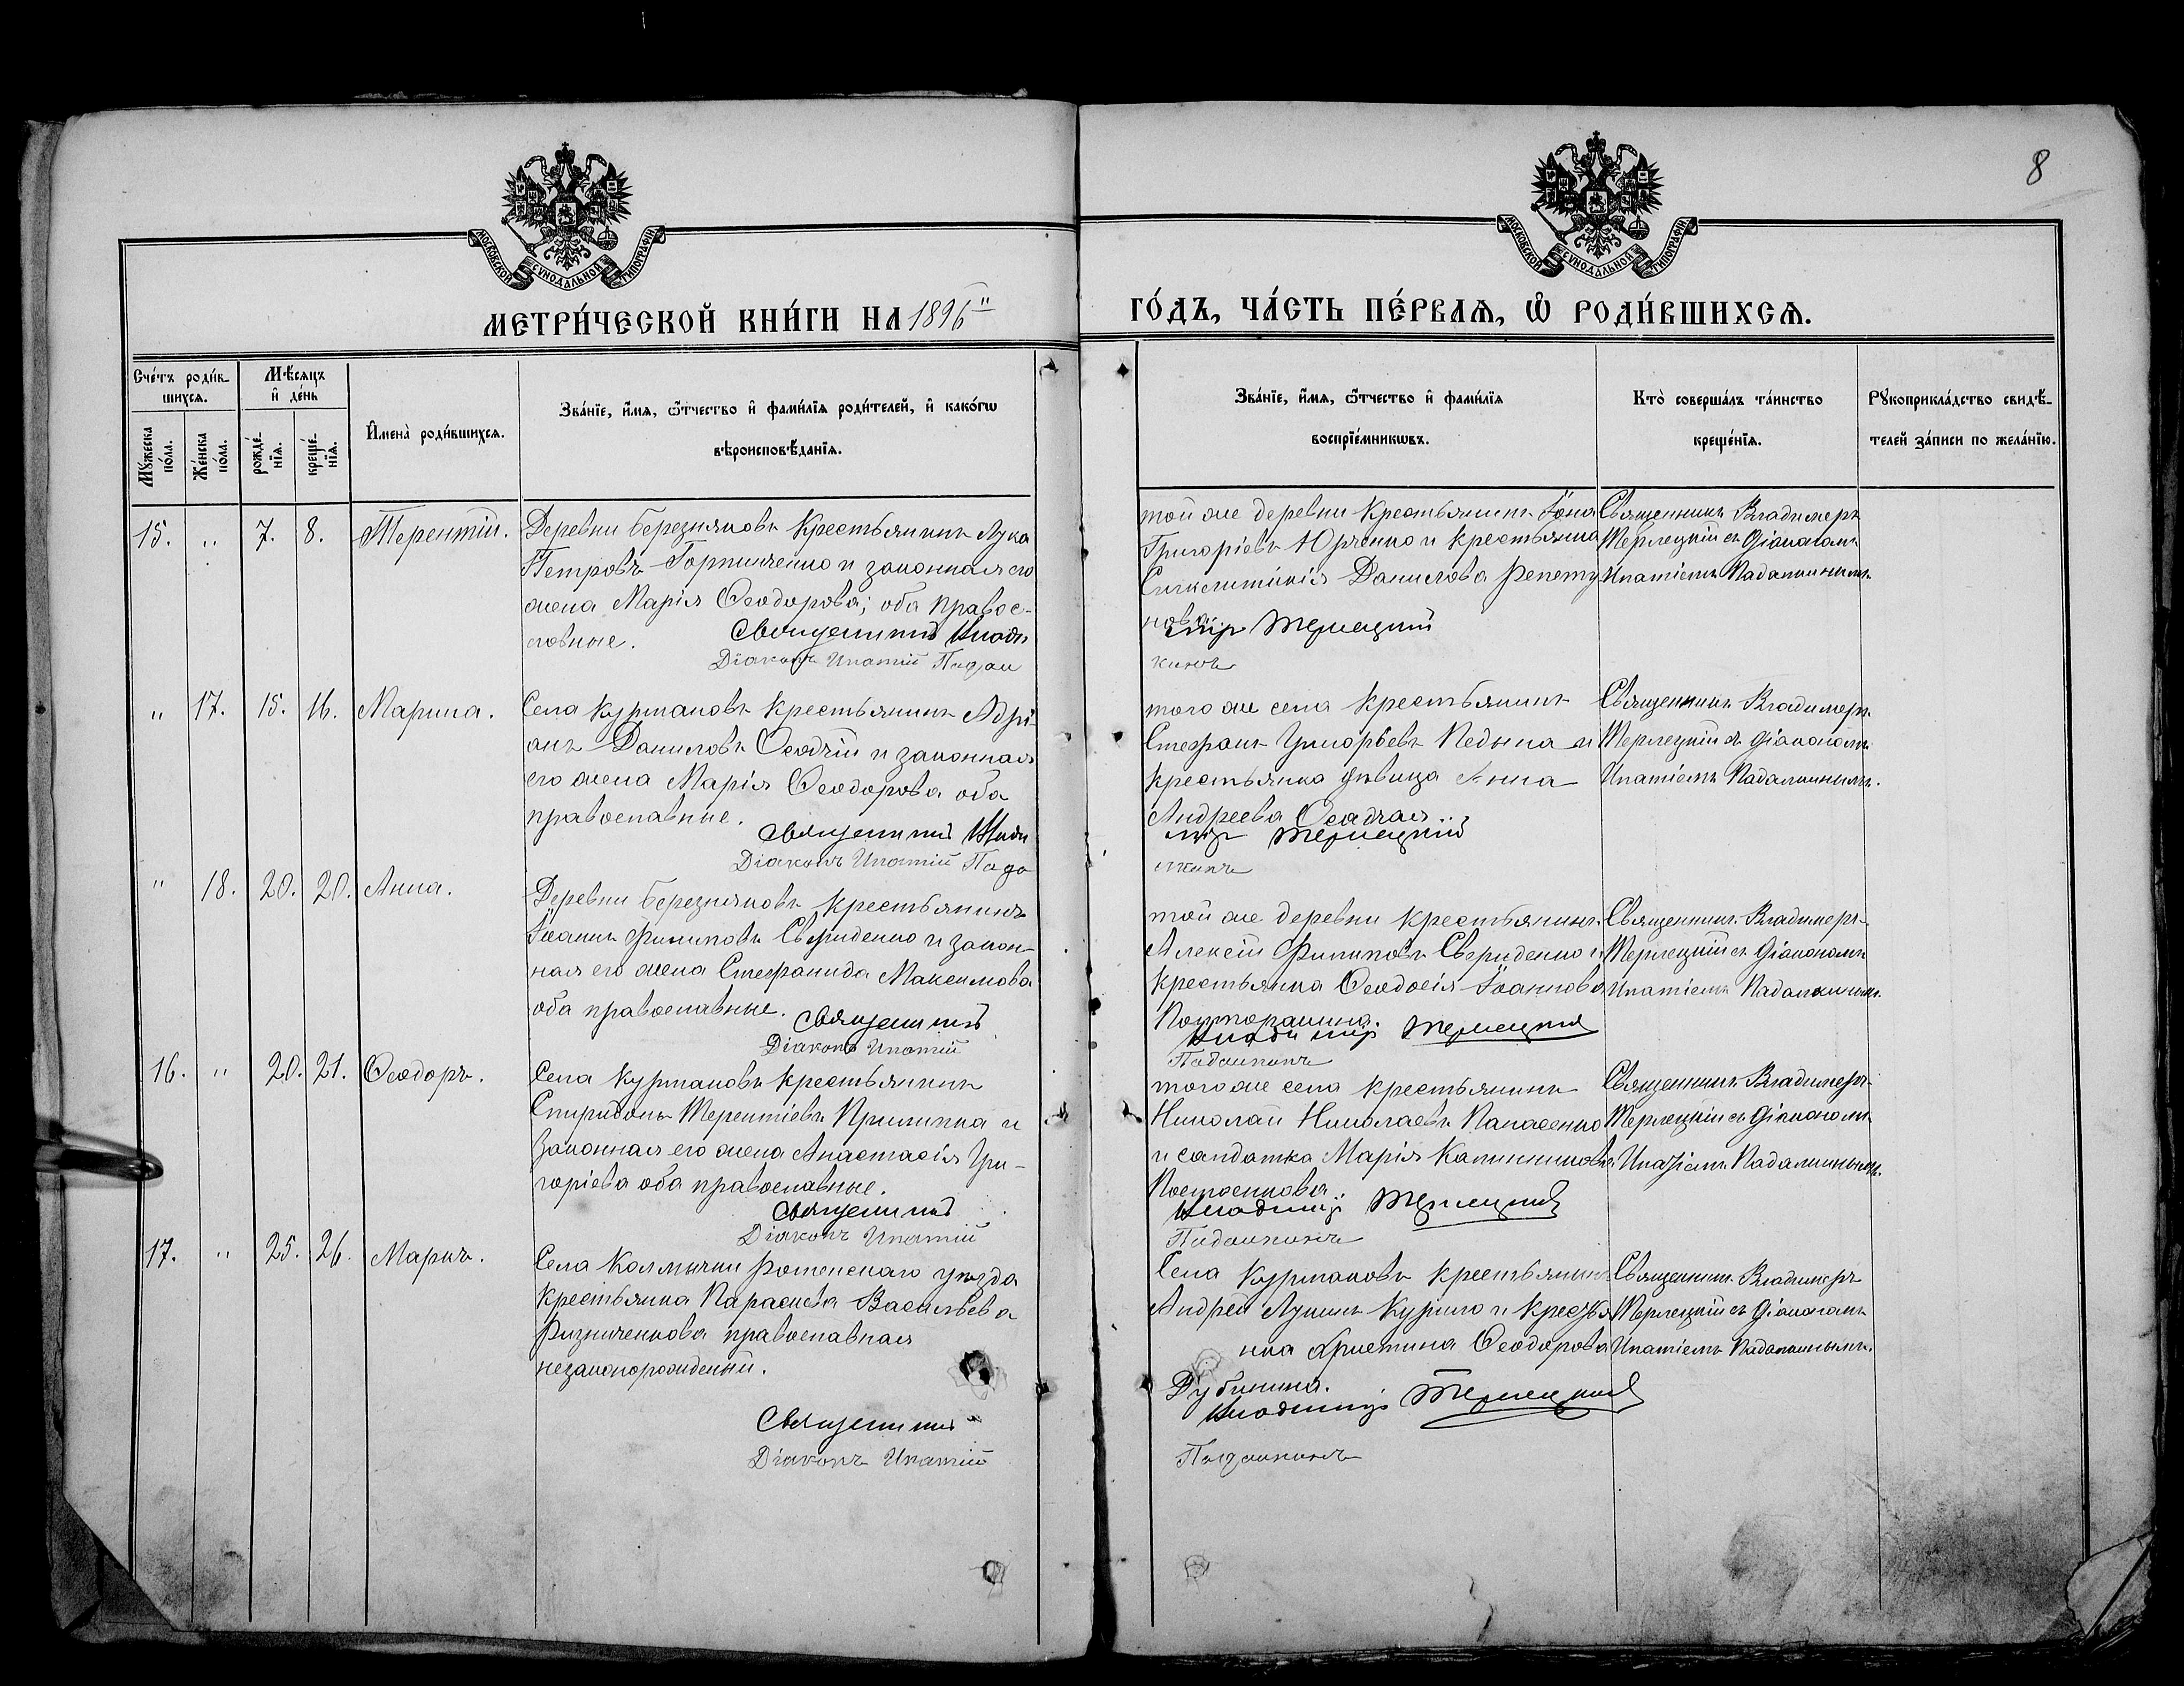 8
МОСКОВСКОЙ СУНОДАЛЬНОЙ ТИПОГРАФІИ
МОСКОВСКОЙ СУНОДАЛЬНОЙ ТИПОГРАФІИ
МЕТРИ́ЧЕСКОЙ КНИ́ГИ НА 1896
ГО́ДЪ, ЧА́СТЬ ПЕ́РВАѦ, Ѡ҆ РОДИ́ВШИХСѦ.
Сче́тъ роди́вшихсѧ.
Мꙋ́жеска по́ла.
Же́нска по́ла.
Мѣ́сѧцъ и҆ де́нь
рожде́нїѧ.
креще́нїѧ.
И҆мена̀ роди́вшихсѧ.
Зва́нїе, и҆́мѧ, ѻ҆́тчество и҆ фами́лїѧ роди́телей, и҆ како́гѡ
вѣроисповѣ́данїѧ.
Зва́нїе, и҆́мѧ, ѻ҆́тчество и҆ фами́лїѧ
воспрїе́мникѡвъ.
Кто̀ соверша́лъ та́инство
креще́нїѧ.
Рꙋкоприкла́дство свидѣ́-
телей за́писи по жела́нїю.
15. " 7. 8. Терентій.
Деревни Березняковъ крестьянинъ Лука
Петровъ Горпинченко и законная его
жена Марія Ѳеодорова; оба правос-
лавные.
Священникъ Влади
Діаконъ Ипатій Падал
той же деревни крестьянинъ Іона
Григоріевъ Юрченко и крестьянка
Синклитикія Данилова Репету
нова.
міръ Терлецкій
кинъ
Священникъ Владимеръ
Терлецкій съ діакономъ
Ипатіемъ Падалкинымъ
" 17. 15. 16. Марина.
Села Курмановъ крестьянинъ Адрі
анъ Даниловъ Осадчій и законная
его жена Марія Ѳеодорова оба
православные.
Священникъ Влади
Діаконъ Ипатій Пада
того же села крестьянинъ
Стефанъ Григорьевъ Педына и
крестьянка дѣвица Анна
Андреева Осадчая.
міръ Терлецкій
лкинъ
Священникъ Владимеръ
Терлецкій съ діакономъ
Ипатіемъ Падалкинымъ.
" 18. 20. 20. Анна.
Деревни Березняковъ крестьянинъ
Іоаннъ Филиповъ Свериденко и закон-
ная его жена Стефанида Максимова
оба православные.
Священникъ
Діаконъ Ипатій
той же деревни крестьянинъ
Алексій Филиповъ Свериденко и
крестьянка Ѳеодосія Іоаннова
Владиміръ Терлецкій
Падалкинъ
Священникъ Владимеръ
Терлецкій съ діакономъ
Ипатіемъ Падалкинымъ.
16. " 20. 21. Ѳеодоръ.
Села Курмановъ крестьянинъ
Спиридонъ Терентіевъ Прилипка и
законная его жена Анастасія Гри-
горіева оба православные.
Священникъ
Діаконъ Ипатій
того же села крестьянинъ
Николай Николаевъ Панасенко
и солдатка Марія Калинникова
Владиміръ Терлецкій
Падалкинъ
Священникъ Владимеръ
Терлецкій съ діакономъ
Ипатіемъ Падалкинымъ.
17. " 25. 26. Маркъ.
Села Колмычки Роменскаго уѣзда
крестьянка Параскева Васильева
Ризниченкова православная
незаконорожденный.
Священникъ
Діаконъ Ипатій
Села Курмановъ крестьянинъ
Андрей Лукинъ Курило и крестья
нка Христина Ѳеодорова
Дубинина.
Владиміръ Терлецкій
Падалкинъ
Священникъ Владимеръ
Терлецкій съ діакономъ
Ипатіемъ Падалкинымъ.